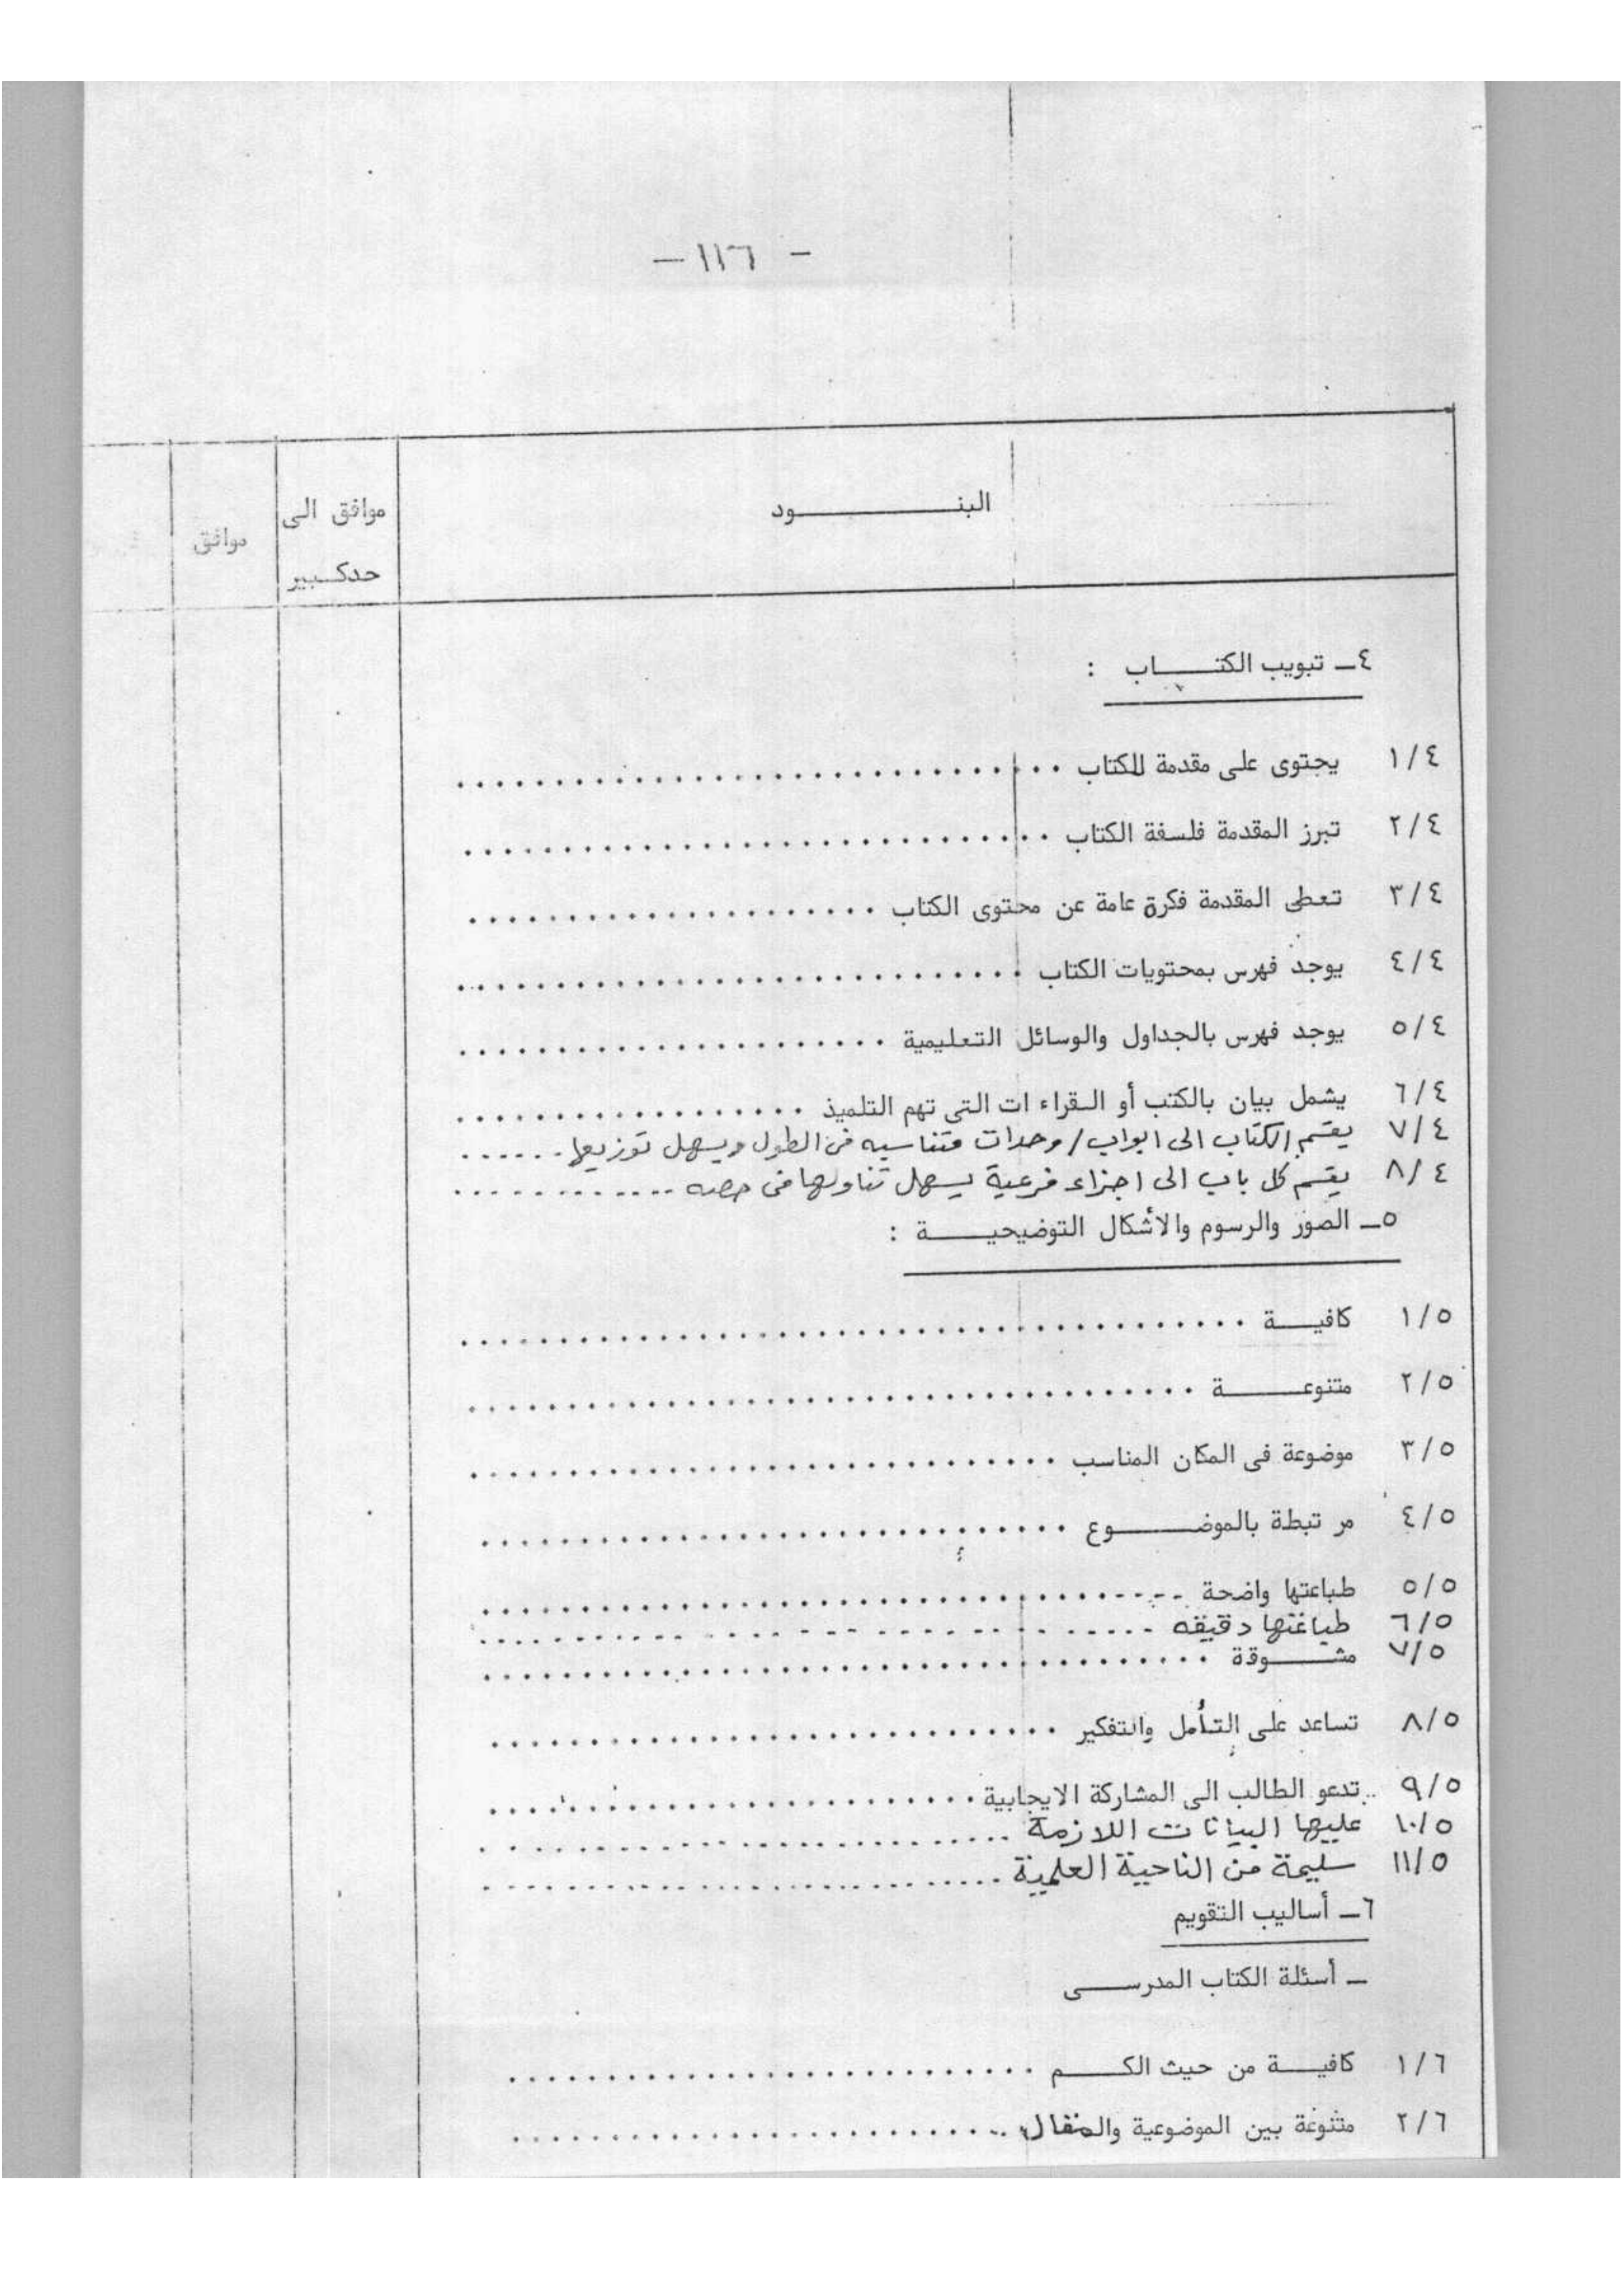 - ١١٦ -
البنــــــــود
موافق الى
حدكــبير
موافق
٤ــ تبويب الكتــــاب :
١/٤ يجتوى على مقدمة للكتاب ..............................
٢/٤ تبرز المقدمة فلسفة الكتاب ..............................
٣/٤ تعطى المقدمة فكرة عامة عن محتوى الكتاب .....................
٤/٤ يوجد فهرس بمحتويات الكتاب .............................
٥/٤ يوجد فهرس بالجداول والوسائل التعليمية ......................
٦/٤ يشمل بيان بالكتب أو القراء ات التى تهم التلميذ ..................
٧/٤ يقسم الكتاب الى ابواب / وحدات متناسبه فى الطول ويسهل توزيعها ......
٨/٤ يقسم كل باب الى اجزاء فرعية يسهل تناولها فى حصه .............
٥ــ الصور والرسوم والأشكال التوضيحيــــة :
١/٥ كافيــــة ........................................
٢/٥ متنوعــــــة .....................................
٣/٥ موضوعة فى المكان المناسب ..............................
٤/٥ مر تبطة بالموضــــــوع ..............................
٥/٥ طباعتها واضحة ....................................
٦/٥ طباعتها دقيقه ....................................
٧/٥ مشـــــوقة .....................................
٨/٥ تساعد على التأمل والتفكير .............................
٩/٥ تدعو الطالب الى المشاركة الايجابية .........................
١٠/٥ عليها البيانات اللازمة ............................
١١/٥ سليمة من الناحية العلمية ............................
٦ــ أساليب التقويم
ــ أسئلة الكتاب المدرســــى
١/٦ كافيــــة من حيث الكـــــم ...........................
٢/٦ متنوعة بين الموضوعية والمقال ..........................